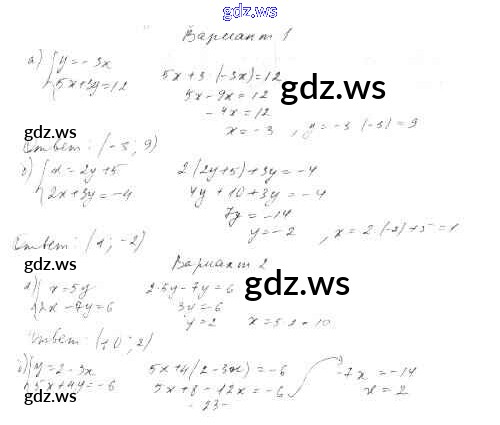 gdz.ws
Вариант 1
а) { y = - 3x
5x + 3y = 12
5x + 3 · (-3x) = 12
5x - 9x = 12
- 4x = 12
x = - 3 , y = - 3 · (-3) = 9
gdz.ws
gdz.ws
Ответ: (-3; 9)
б) { x = 2y + 5
2x + 3y = - 4
2(2y + 5) + 3y = - 4
4y + 10 + 3y = - 4
7y = - 14
y = - 2 , x = 2 · (-2) + 5 = 1
gdz.ws
gdz.ws
Ответ: (1; -2)
Вариант 2
а) { x = 5y
2x - 7y = 6
2·5y - 7y = 6
3y = 6
y = 2 x = 5·2 = 10
gdz.ws
gdz.ws
Ответ: (10; 2)
б) { y = 2 - 3x
5x + 4y = - 6
5x + 4(2 - 3x) = - 6
5x + 8 - 12x = - 6
- 7x = - 14
x = 2
gdz.ws
- 23 -